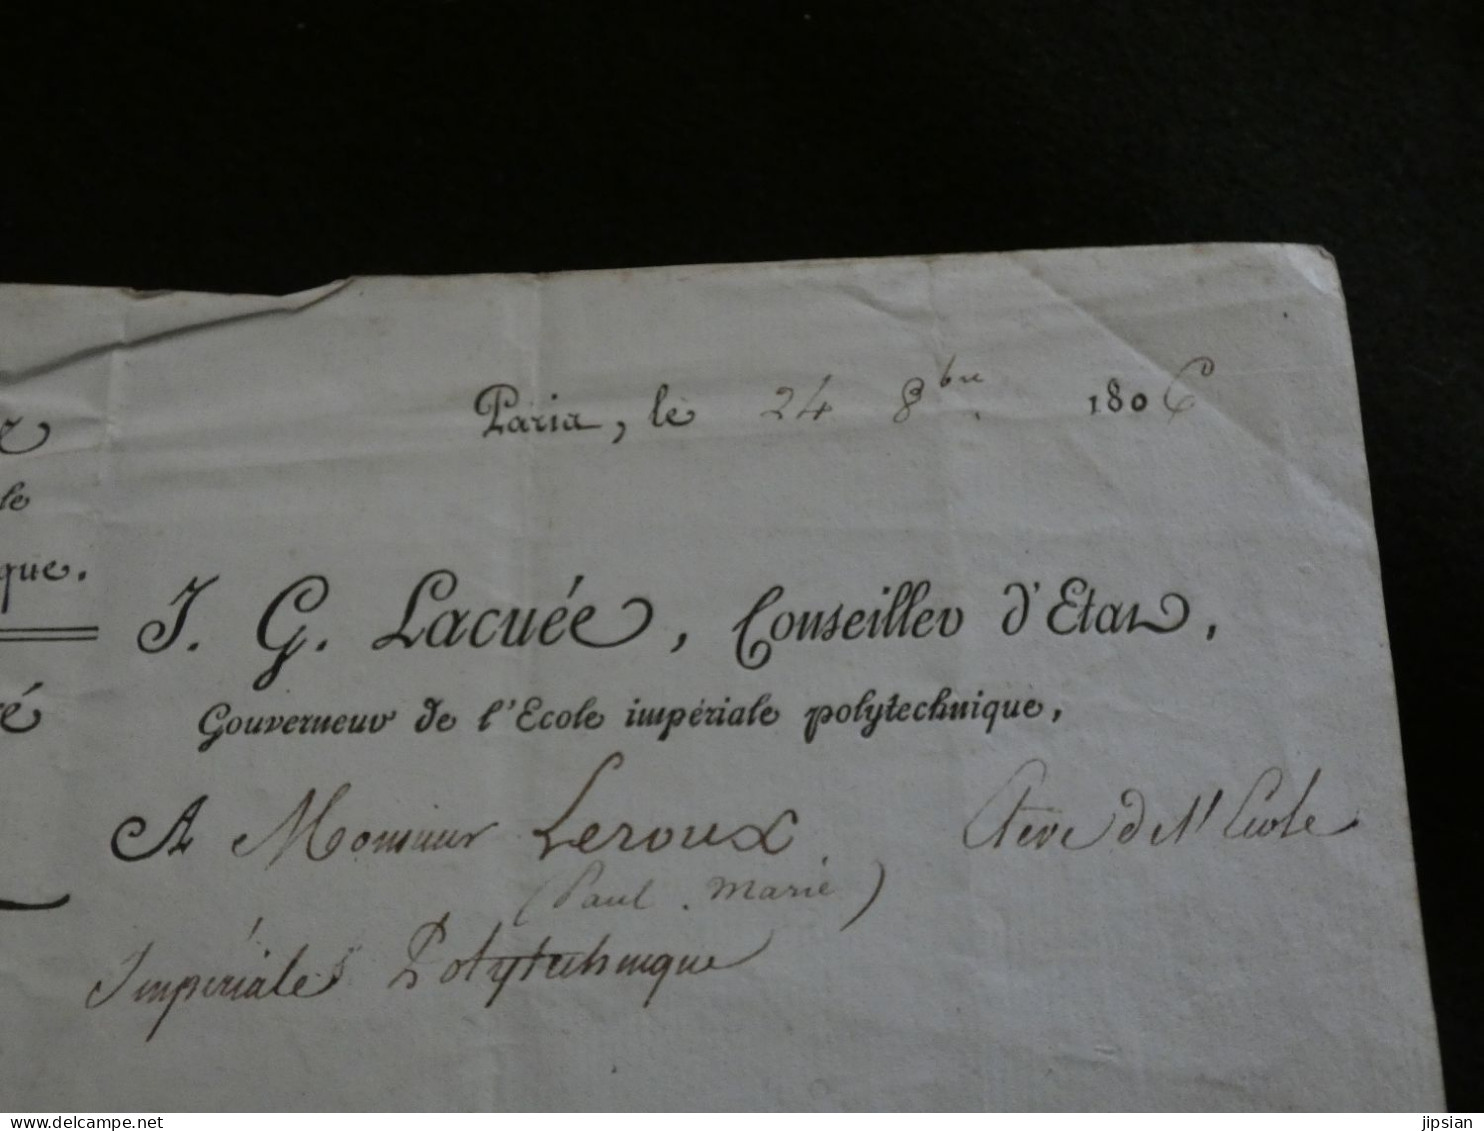 Paris, le 24 8bre 1806
le
que.
J. G. Lacuée, Conseiller d'Etat,
Gouverneur de l'Ecole impériale polytechnique,
A Monsieur Leroux Elève de l'Ecole
(Paul. Marie)
Impériale Polytechnique
delcampe.net
jipsian